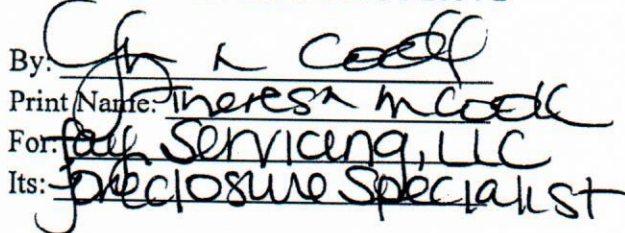 By:
Print Name: Theresa M Cook
For: Fay Servicing, LLC
Its: Foreclosure Specialist